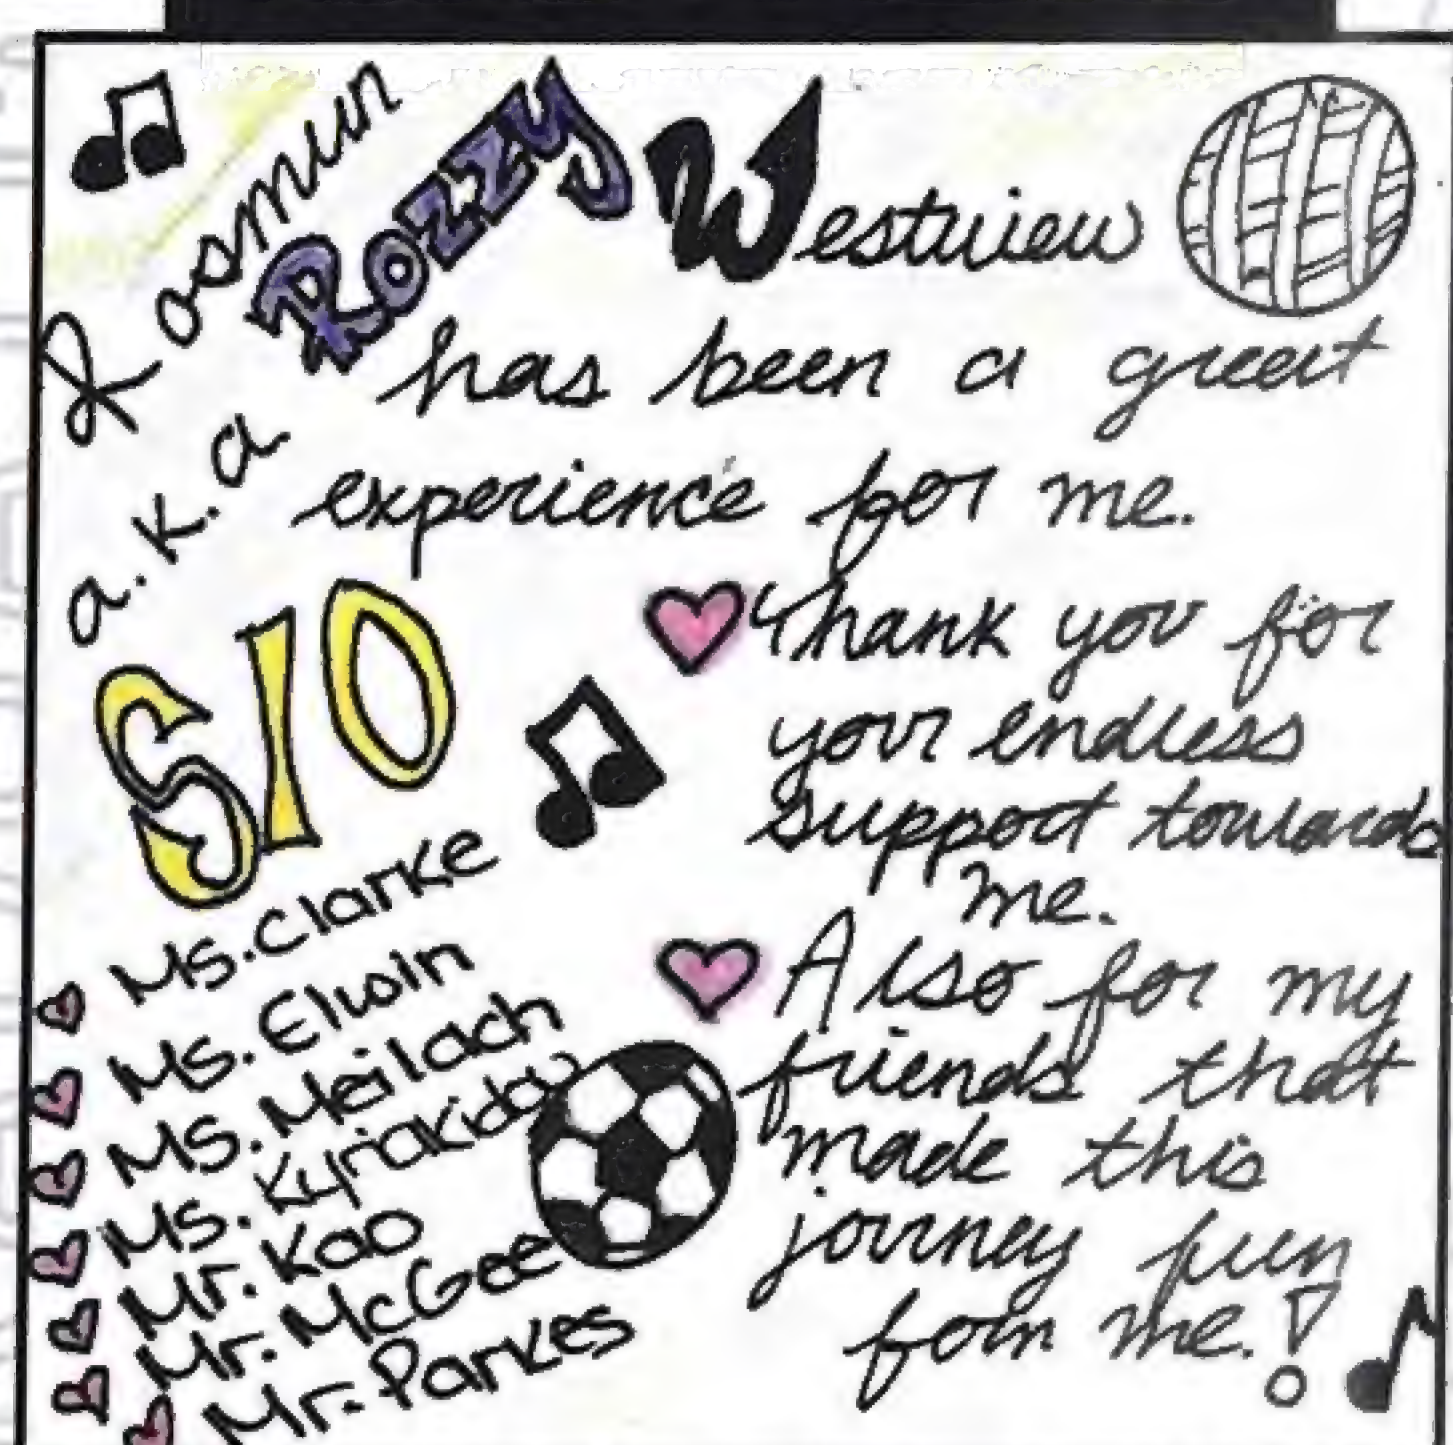 Rosmin
a.k.a
Rozzy
Westview
has been a great
experience for me.
Thank you for
your endless
support towards
me.
Also for my
friends that
made this
journey fun
for me.!
S/O
Ms. Clarke
Ms. Elwin
Ms. Meilach
Ms. Kyriakidou
Mr. Kao
Mr. McGee
Mr. Parkes